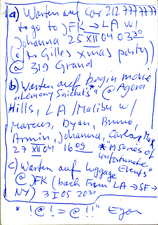 a) Warten auf car 212 777777
to go to JFK → LA w/
Johanna 25 XII 04 0330
(in Gilles xmas party)
@ 319 Grand
b) Warten auf begin movie
"Lemony Snickets" @ Agora
Hills, LA / Malibu w/
Marcus, Dyan, Bruno,
Armin, Johanna,
27 XII 04 1609 "A series of
unfortunate
Events"
c) Warten auf luggage
@ JFK (back from LA → SF →
NY) 3 I 05 2030
* !@!=@!! *